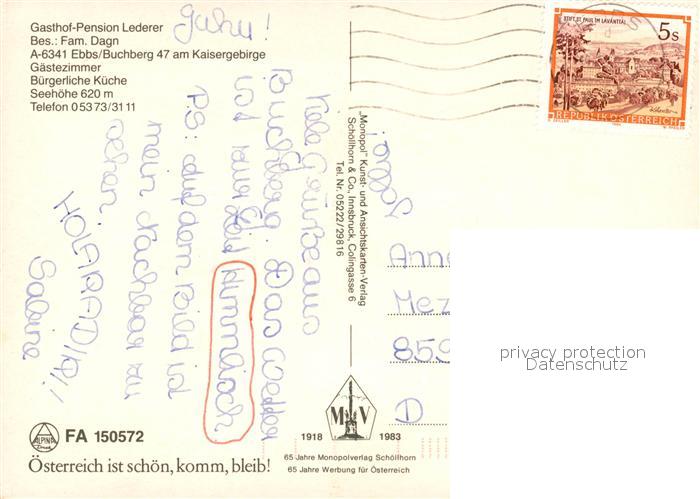 Gasthof-Pension Lederer
Bes.: Fam. Dagn
A-6341 Ebbs/Buchberg 47 am Kaisergebirge
Gästezimmer
Bürgerliche Küche
Seehöhe 620 m
Telefon 0 53 73/31 11
Juhu!
Viele Grüße aus
Buchberg. Das Wetter
ist
himmlisch.
PS: auf dem Bild ist
mein Nachbar zu
sehen.
HOLARADIO!!
Sabine
„Monopol" Kunst- und Ansichtskarten-Verlag
Schöllhorn & Co., Innsbruck, Colingasse 6
Tel. Nr. 05222/29816
STIFT ST. PAUL IM LAVANTTAL
5s
REPUBLIK ÖSTERREICH
Anne
Mez
859
D
privacy protection
Datenschutz
ALPINA
Druck
FA 150572
Österreich ist schön, komm, bleib!
M V
1918 1983
65 Jahre Monopolverlag Schöllhorn
65 Jahre Werbung für Österreich